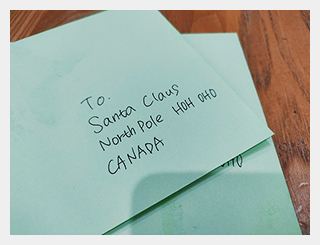 To.
Santa Claus
North Pole HOH OHO
CANADA
OHO